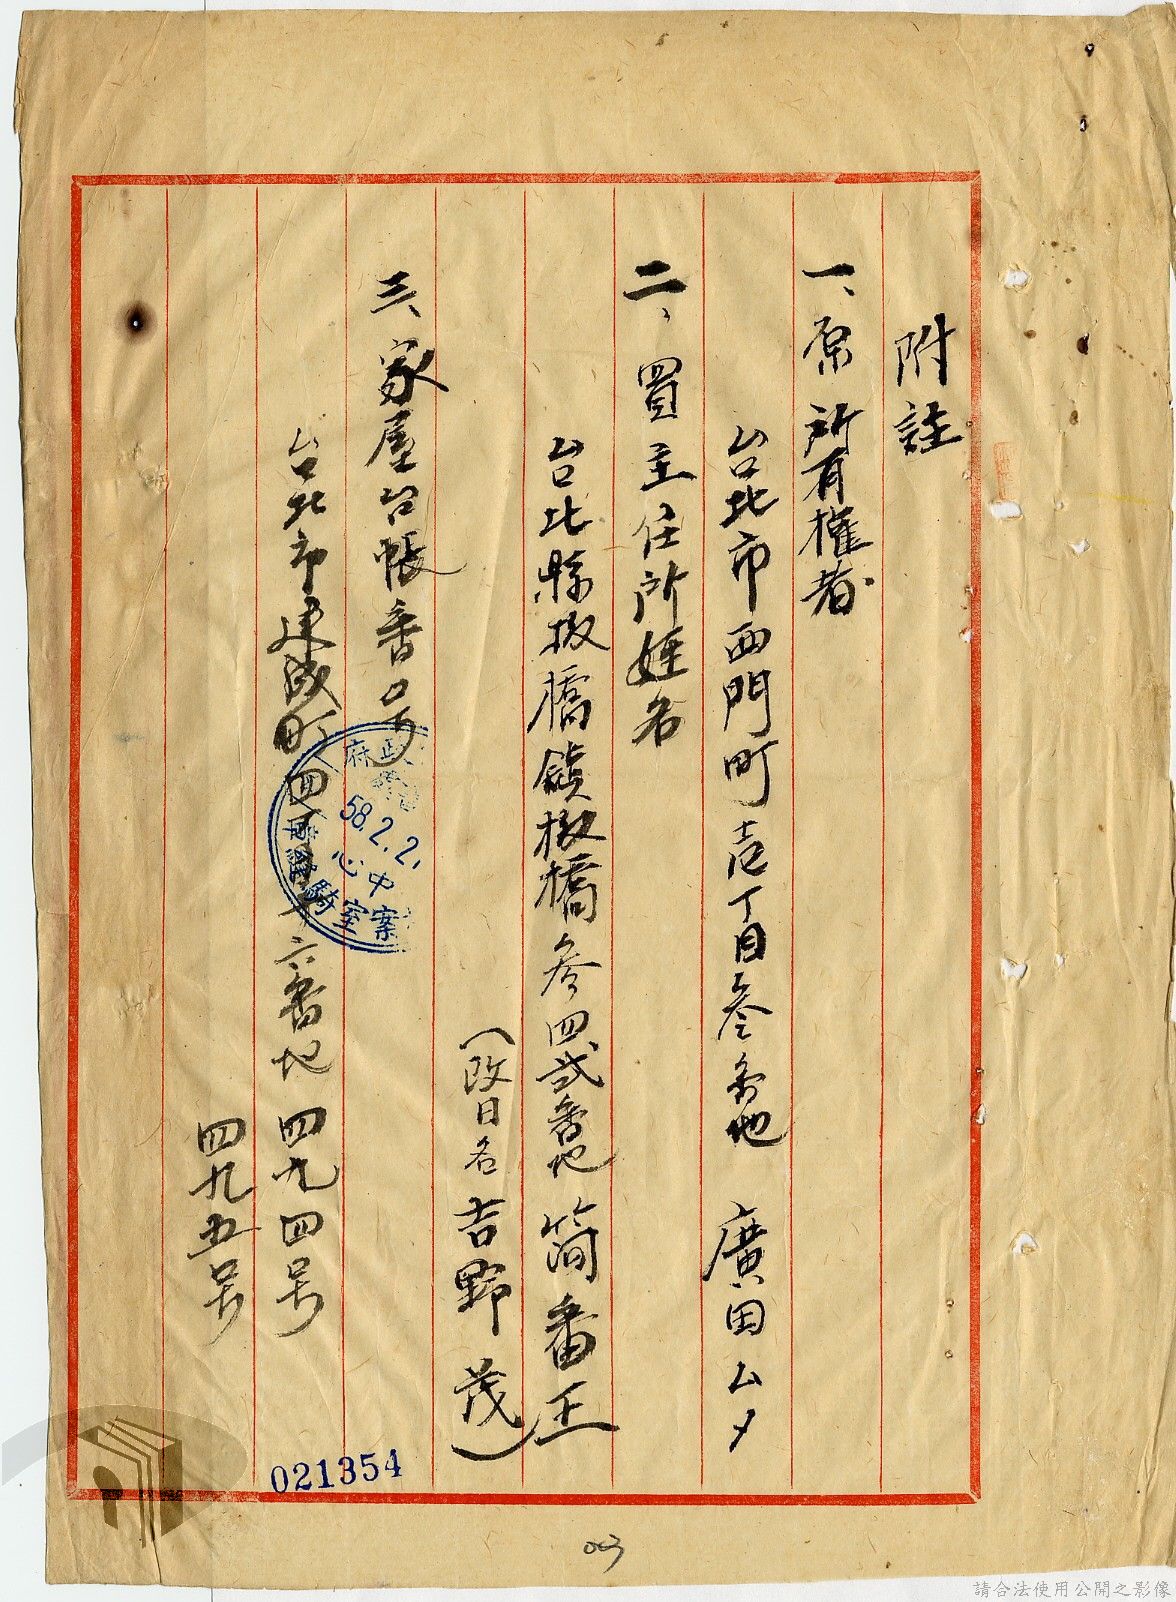 附註
一、原所有權者
台北市西門町壱丁目叁番地 廣田ムタ
二、買主住所姓名
台北縣板橋鎮板橋参四弐番地 簡番王
(改日名 吉野茂)
三、家屋台帳番号
台北市建成町四丁目六番地 四九四号
四九五号
58.2.2
中心
021354
003
請合法使用公開之影像